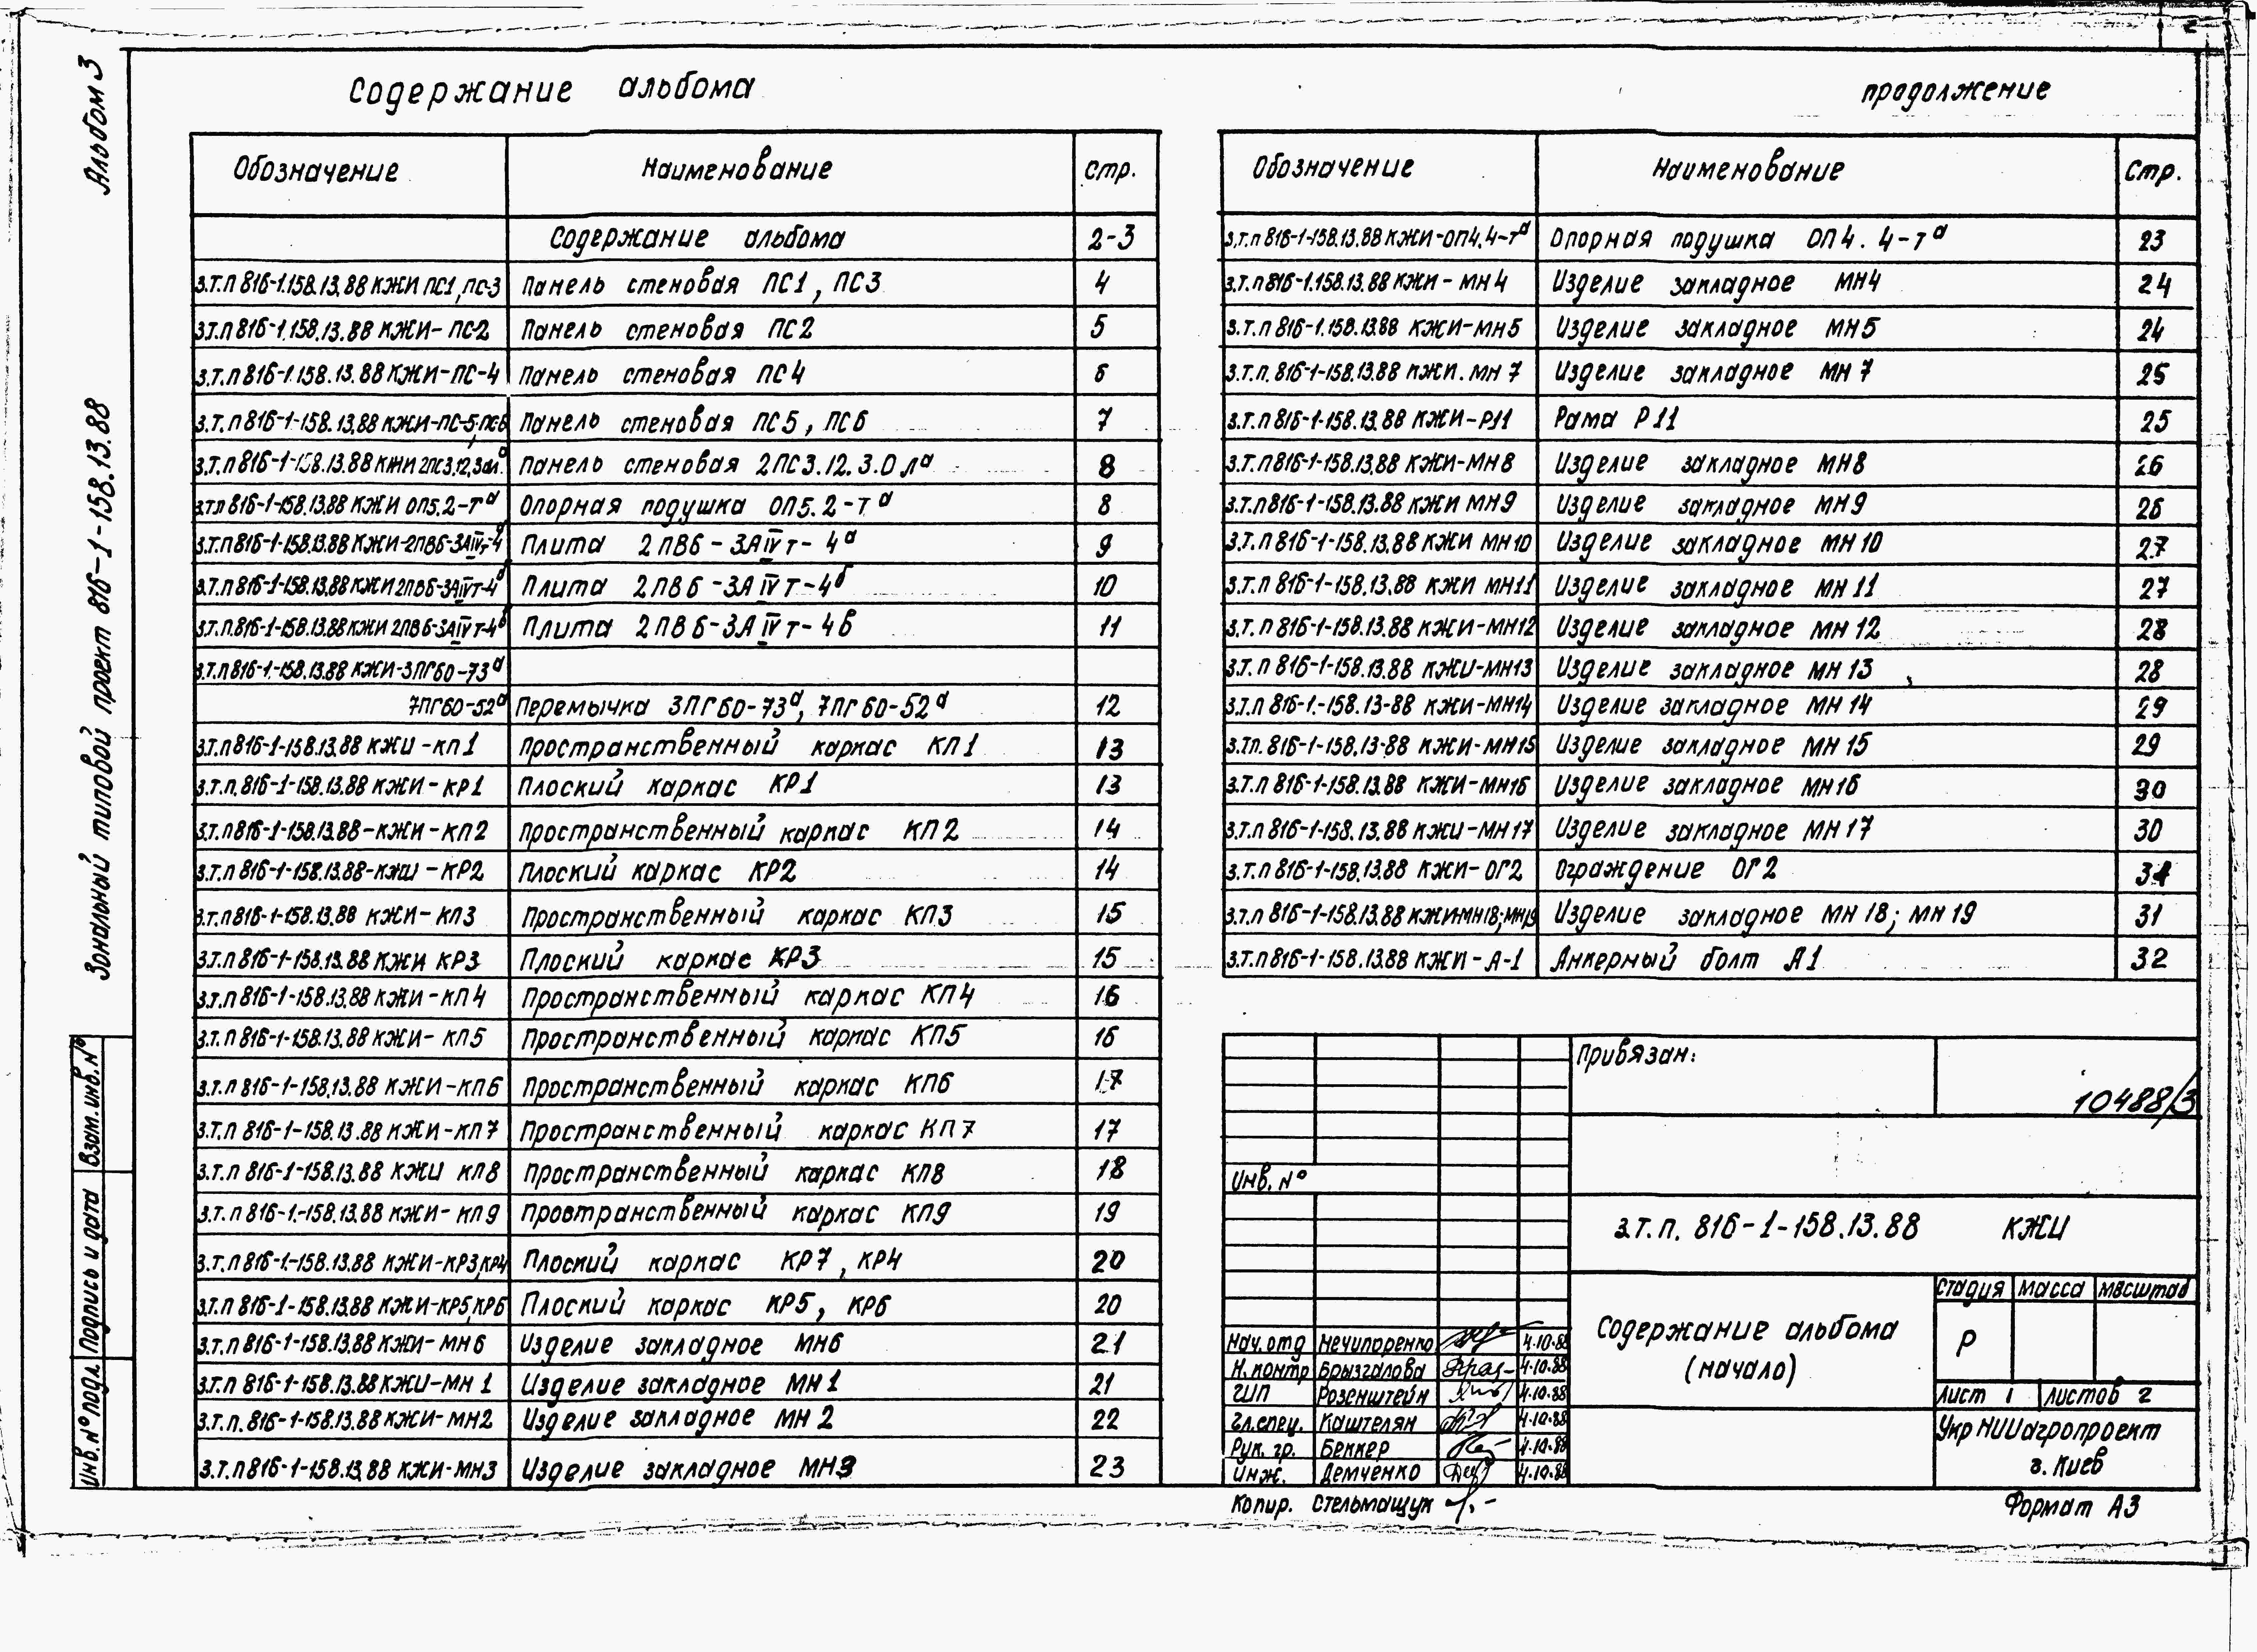 2
Альбом 3
Зональный типовой проект 816-1-158.13.88
Взам. инв. №
Подпись и дата
Инв. № подл.
Содержание альбома
Обозначение Наименование Стр.
Содержание альбома 2-3
З.т.п 816-1.158.13.88 КЖИ ПС1, ПС-3 Панель стеновая ПС1, ПС3 4
З.т.п 816-1.158.13.88 КЖИ-ПС-2 Панель стеновая ПС2 5
З.т.п 816-1.158.13.88 КЖИ-ПС-4 Панель стеновая ПС4 6
З.т.п 816-1-158.13.88 КЖИ-ПС-5, ПС-6 Панель стеновая ПС5, ПС6 7
З.т.п 816-1-158.13.88 КЖИ 2ПС3.12,3.0лª Панель стеновая 2ПС3.12.3.0лª 8
З.т.п 816-1-158.13.88 КЖИ ОП5.2-тª Опорная подушка ОП5.2-тª 8
З.т.п 816-1-158.13.88 КЖИ-2ПВ6-3АIVт-4ª Плита 2ПВ6-3АIVт-4ª 9
З.т.п 816-1-158.13.88 КЖИ 2ПВ6-3АIVт-4б Плита 2ПВ6-3АIVт-4б 10
З.т.п. 816-1-158.13.88 КЖИ 2ПВ6-3АIVт-4в Плита 2ПВ6-3АIVт-4в 11
З.т.п 816-1-158.13.88 КЖИ-3ПГ60-73ª
7ПГ60-52ª Перемычка 3ПГ60-73ª, 7ПГ60-52ª 12
З.т.п 816-1-158.13.88 КЖИ-КП1 Пространственный каркас КП1 13
З.т.п. 816-1-158.13.88 КЖИ-КР1 Плоский каркас КР1 13
З.т.п 816-1-158.13.88-КЖИ-КП2 Пространственный каркас КП2 14
З.т.п 816-1-158.13.88-КЖИ-КР2 Плоский каркас КР2 14
З.т.п 816-1-158.13.88 КЖИ-КП3 Пространственный каркас КП3 15
З.т.п 816-1-158.13.88 КЖИ КР3 Плоский каркас КР3 15
З.т.п 816-1-158.13.88 КЖИ-КП4 Пространственный каркас КП4 16
З.т.п 816-1-158.13.88 КЖИ-КП5 Пространственный каркас КП5 16
З.т.п 816-1-158.13.88 КЖИ-КП6 Пространственный каркас КП6 17
З.т.п 816-1-158.13.88 КЖИ-КП7 Пространственный каркас КП7 17
З.т.п 816-1-158.13.88 КЖИ КП8 Пространственный каркас КП8 18
З.т.п 816-1.-158.13.88 КЖИ-КП9 Провтранственный каркас КП9 19
З.т.п 816-1.-158.13.88 КЖИ-КР3,КР4 Плоский каркас КР7, КР4 20
З.т.п 816-1-158.13.88 КЖИ-КР5,КР6 Плоский каркас КР5, КР6 20
З.т.п 816-1-158.13.88 КЖИ-МН6 Изделие закладное МН6 21
З.т.п 816-1-158.13.88 КЖИ-МН 1 Изделие закладное МН 1 21
З.т.п. 816-1-158.13.88 КЖИ-МН2 Изделие закладное МН 2 22
З.т.п 816-1-158.13.88 КЖИ-МН3 Изделие закладное МН3 23
продолжение
Обозначение Наименование Стр.
З.т.п 816-1-158.13.88 КЖИ-ОП4.4-тª Опорная подушка ОП4.4-тª 23
З.т.п 816-1.158.13.88 КЖИ-МН4 Изделие закладное МН4 24
З.т.п 816-1.158.13.88 КЖИ-МН5 Изделие закладное МН5 24
З.т.п. 816-1-158.13.88 КЖИ. МН 7 Изделие закладное МН 7 25
З.т.п 816-1-158.13.88 КЖИ-Р11 Рама Р11 25
З.т.п 816-1-158.13.88 КЖИ-МН8 Изделие закладное МН8 26
З.т.п 816-1-158.13.88 КЖИ МН9 Изделие закладное МН9 26
З.т.п 816-1-158.13.88 КЖИ МН10 Изделие закладное МН10 27
З.т.п 816-1-158.13.88 КЖИ МН11 Изделие закладное МН 11 27
З.т.п 816-1-158.13.88 КЖИ-МН12 Изделие закладное МН 12 28
З.т.п 816-1-158.13.88 КЖИ-МН13 Изделие закладное МН 13 28
З.т.п 816-1.-158.13-88 КЖИ-МН14 Изделие закладное МН 14 29
З.тп. 816-1-158.13-88 КЖИ-МН15 Изделие закладное МН 15 29
З.т.п 816-1-158.13.88 КЖИ-МН16 Изделие закладное МН16 30
З.т.п 816-1-158.13.88 КЖИ-МН17 Изделие закладное МН 17 30
З.т.п 816-1-158.13.88 КЖИ-ОГ2 Ограждение ОГ2 31
З.т.п 816-1-158.13.88 КЖИ-МН18; МН19 Изделие закладное МН 18; МН 19 31
З.т.п 816-1-158.13.88 КЖИ-А-1 Анкерный болт А1 32
Привязан:
10488/3
Инв. №
З.т.п. 816-1-158.13.88 КЖИ
Содержание альбома
(начало)
Стадия Масса Масштаб
Р
Лист 1 Листов 2
УкрНИИагропроект
г. Киев
Нач. отд Нечипоренко 4.10.88
Н. контр Брызгалова 4.10.88
ГИП Розенштейн 4.10.88
Гл. спец. Каштелян 4.10.88
Рук. гр. Беккер 4.10.88
Инж. Демченко 4.10.88
Копир. Стельмащук
Формат А3